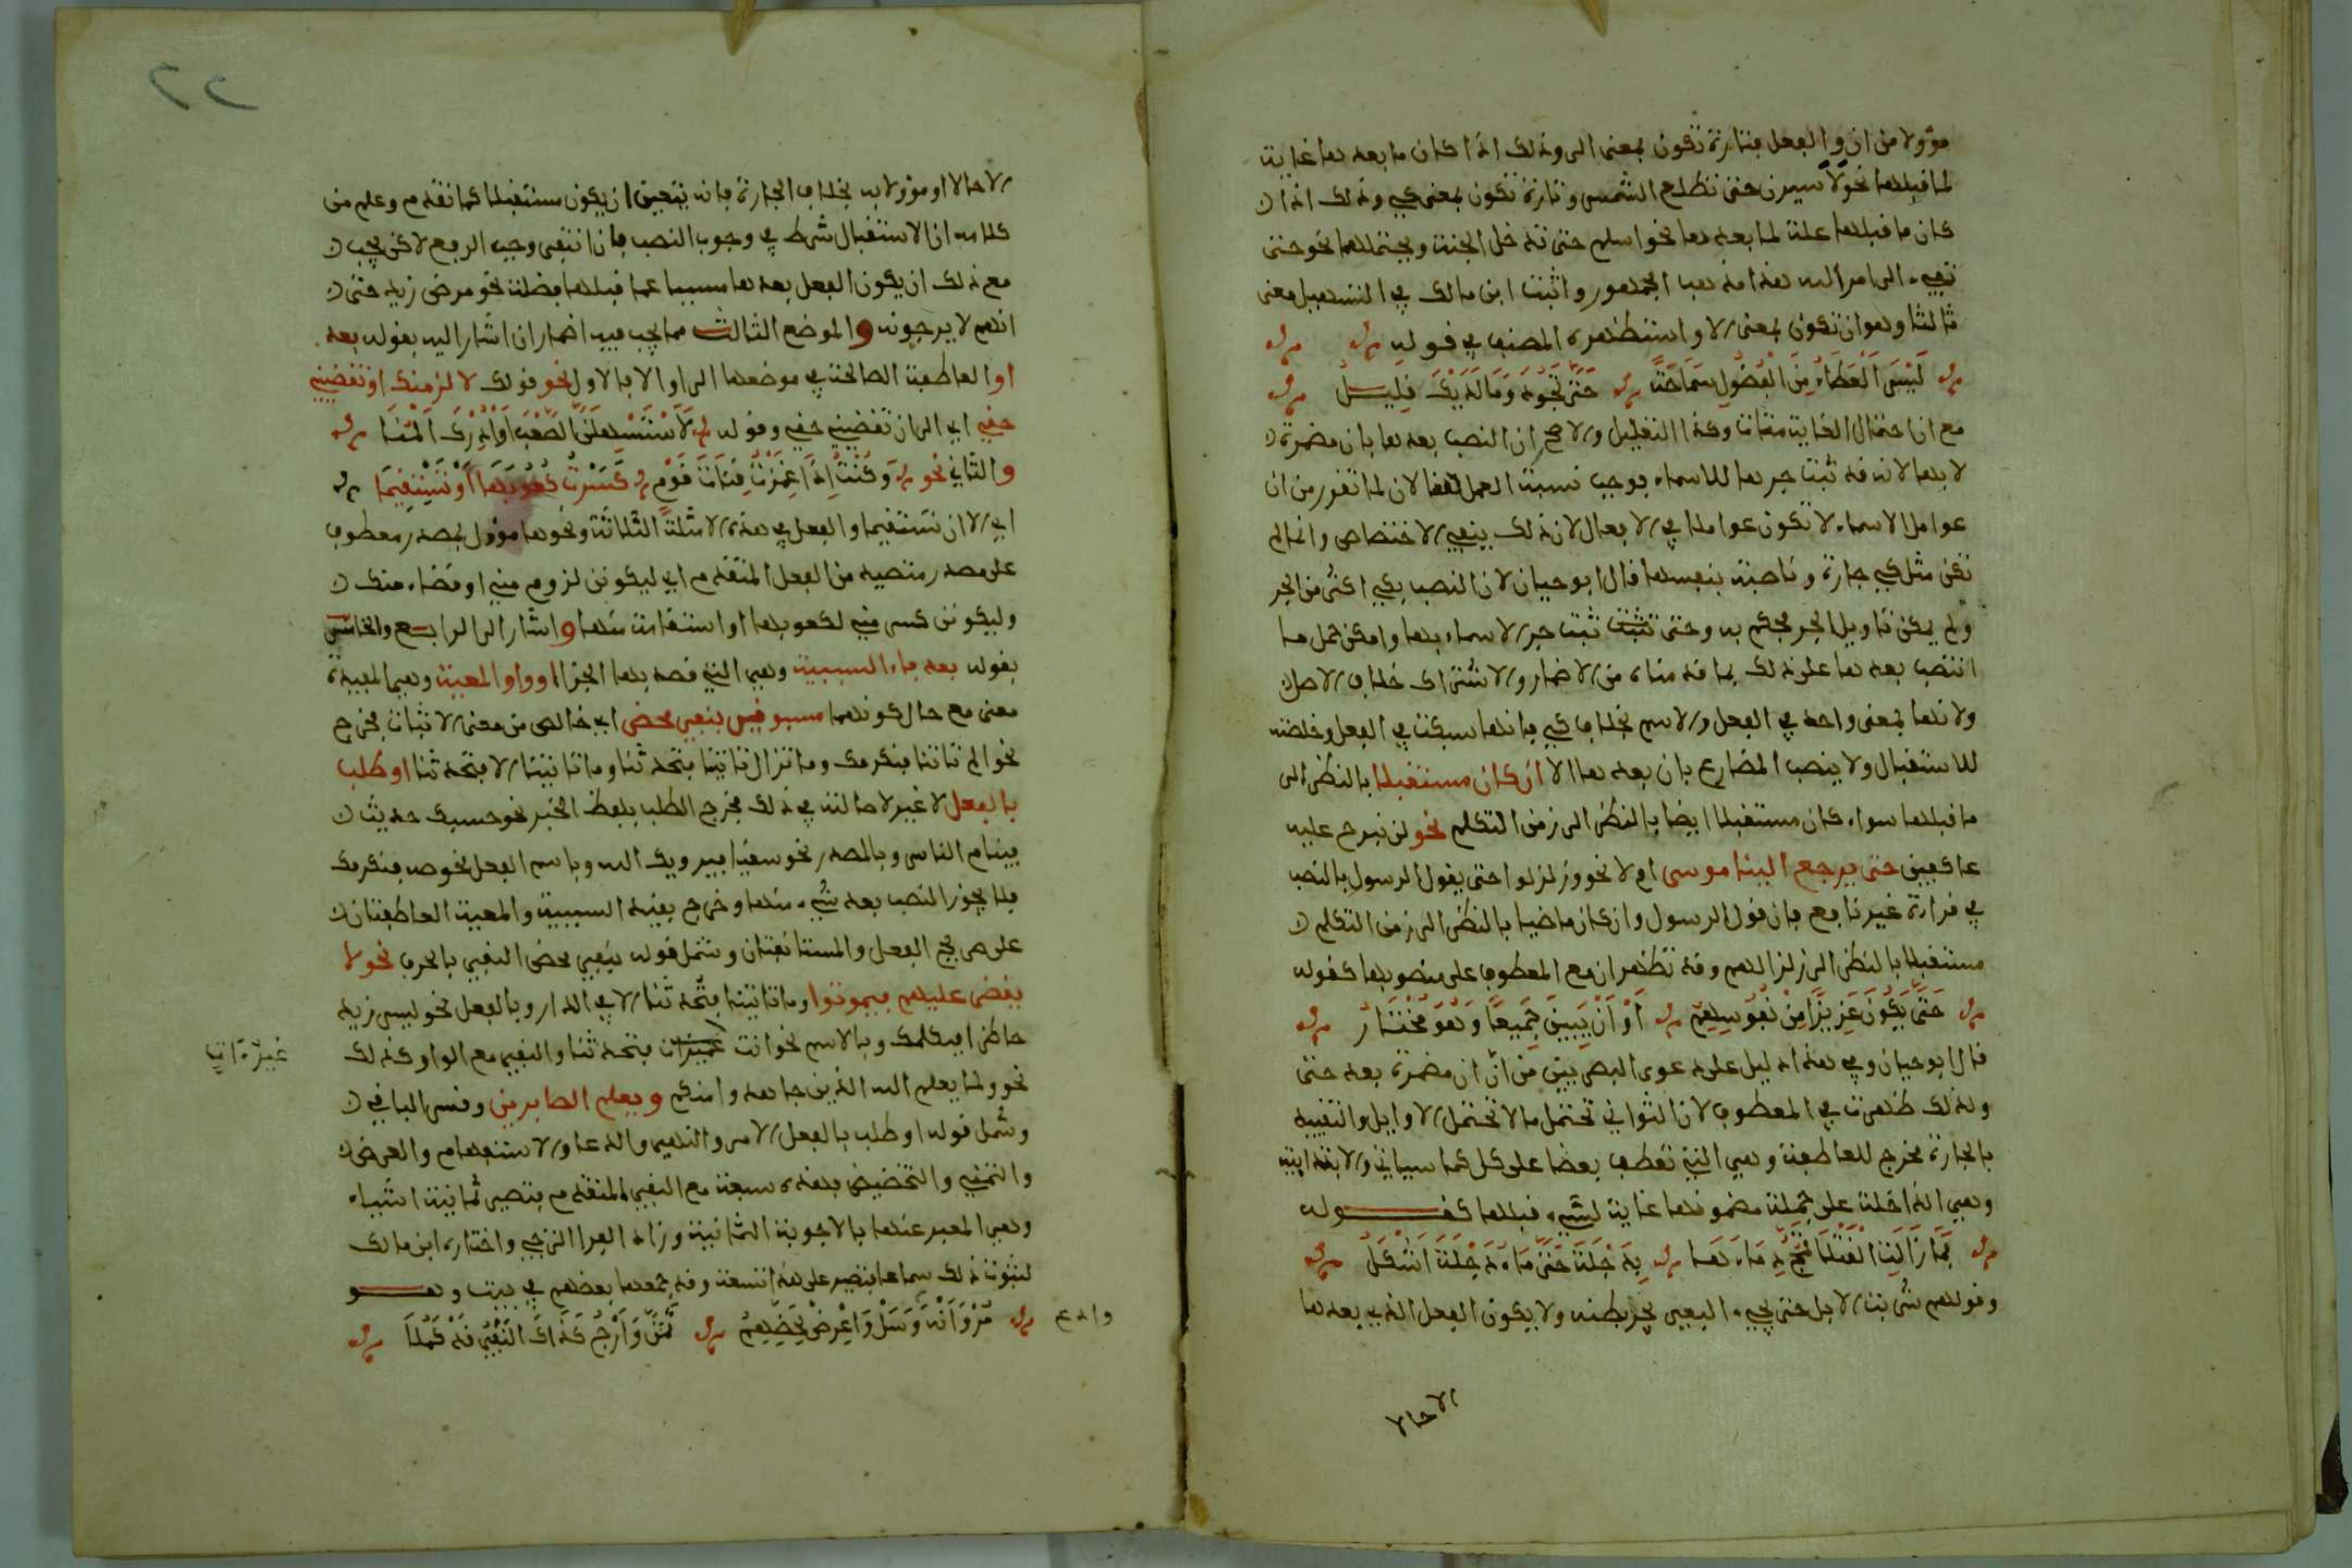 مؤولا من ان والفعل فتارة تكون بمعنى الى وذلك اذا كان ما بعدها غاية
لما قبلها نحو لأسيرن حتى تطلع الشمس وتارة تكون بمعنى كي وذلك اذا
كان ما قبلها علة لما بعدها نحو اسلم حتى تدخل الجنة ويحتملها نحو حتى
تفيء الى امر الله هذا مذهب الجمهور واثبت ابن مالك في التسهيل معنى
ثالثا وهو ان تكون بمعنى الا واستظهره المصنف في قوله
لَيْسَ الْعَطَاءُ مِنَ الْفُضُولِ سَمَاحَةً حَتَّى تَجُودَ وَمَا لَدَيْكَ قَلِيلُ
مع ان احتمال الغاية متأت وكذا التعليل والاصح ان النصب بعدها بان مضمرة
لا بها لانه قد ثبت جرها للاسماء فوجب نسبة العمل لان لما تقرر من ان
عوامل الاسماء لا تكون عواملا في الافعال لان ذلك ينفي الاختصاص وانما لم
تكن مثل كي جارة وناصبة بنفسها قال ابو حيان لان النصب بكي اكثر من الجر
ولم يمكن تاويل الجر فحكم به وحتى ثبت جر الاسماء بها وامكن حمل ما
انتصب بعدها على ذلك بما قدمناه من الاضمار والاشتراك خلاف الاصل
ولانها بمعنى واحد في الفعل والاسم بخلاف كي فانها سبكت في الفعل وخلصته
للاستقبال ولا ينصب المضارع بان بعدها الا ان كان مستقبلا بالنظر الى
ما قبلها سواء كان مستقبلا ايضا بالنظر الى زمن التكلم نحو لن نبرح عليه
عاكفين حتى يرجع الينا موسى ام لا نحو وزلزلوا حتى يقول الرسول بالنصب
في قراءة غير نافع فان قول الرسول وان كان ماضيا بالنظر الى زمن التكلم
مستقبل بالنظر الى زلزالهم وقد تظهر ان مع المعطوف على منصوبها كقوله
حَتَّى يَكُونَ عَزِيزًا مِنْ نُفُوسِهِمْ أَوْ أَنْ يَبِينَ جَمِيعًا وَهُوَ مُخْتَارُ
قال ابو حيان وفي هذا دليل على دعوى البصريين من أنّ ان مضمرة بعد حتى
ولذلك ظهرت في المعطوف لان الثواني تحتمل ما لا تحتمل الاوايل والتقييد
بالجارة مخرج للعاطفة وهي التي تعطف بعضا على كل كما سياتي والابتدايية
وهي الداخلة على جملة مضمونها غاية لشيء قبلها كقوله
فَمَا زَالَتِ الْقَتْلَى تَمُجُّ دِمَاءَهَا بِدَجْلَةَ حَتَّى مَاءُ دَجْلَةَ أَشْكَلُ
وقولهم شربت الابل حتى يجيء البعير يجر بطنه ولا يكون الفعل الذي بعدها
الا حالا
٢٢
الا حالا او مؤولا به بخلاف الجارة فانه يتعين ان يكون مستقبلا كما تقدم وعلم من
كلامه ان الاستقبال شرط في وجوب النصب فان انتفى وجب الرفع لاكن يجب
مع ذلك ان يكون الفعل بعدها مسببا عما قبلها فضلة نحو مرض زيد حتى
انهم لا يرجونه والموضع الثالث مما يجب فيه اضمار ان اشار اليه بقوله بعد
او العاطفة الصالحة في موضعها الى او الا فالاول نحو قولك لالزمنك او تقضيني
حقي اي الى ان تقضيني حقي وقوله لَأَسْتَسْهِلَنَّ الصَّعْبَ أَوْ أُدْرِكَ الْمُنَى
والثاني نحو وَكُنْتُ إِذَا غَمَزْتُ قَنَاةَ قَوْمٍ كَسَرْتُ كُعُوبَهَا أَوْ تَسْتَقِيمَا
اي الا ان تستقيما والفعل في هذه الامثلة الثلاثة ونحوها مؤول بمصدر معطوف
على مصدر متصيد من الفعل المتقدم اي ليكونن لزوم مني او قضاء منك
وليكونن كسر مني لكعوبها او استقامة منها واشار الى الرابع والخامس
بقوله بعد فاء السببية وهي التي قصد بها الجزا او واو المعية وهي المفيدة
معنى مع حال كونهما مسبوقين بنفي محض اي خالص من معنى الاثبات فخرج
نحو الم تاتنا فنكرمك وما تزال تاتينا فتحدثنا وما تاتينا الا فتحدثنا او طلب
بالفعل لاغير لاصالته في ذلك فخرج الطلب بلفظ الخبر نحو حسبك حديث
فينام الناس وبالمصدر نحو سقيا فيرويك الله وباسم الفعل نحو صه فنكرمك
فلا يجوز النصب بعد شيء منها وخرج بقيد السببية والمعية العاطفتان
على صريح الفعل والمستانفتان وشمل قوله بنفي محض النفي بالحرف نحو لا
يقضى عليهم فيموتوا وما تاتينا فتحدثنا الا في الدار وبالفعل نحو ليس زيد
حاظرا فيكلمك وبالاسم نحو انت فتحدثنا والنفي مع الواو كذلك
غير ءات
نحو ولما يعلم الله الذين جاهدوا منكم ويعلم الصابرين وقس الباقي
وشمل قوله او طلب بالفعل الامر والنهي والدعا والاستفهام والعرض
والتمني والتخضيض فهذه سبعة مع النفي المتقدم فتصير ثمانية اشياء
وهي المعبر عنها بالاجوبة الثمانية وزاد الفرا الترجي واختاره ابن مالك
لثبوت ذلك سماعا فتصير على هذا تسعة وقد جمعها بعضهم في بيت وهو
مُرْ وَانْهَ وَسَلْ وَاعْرِضْ لِحَضِّهِمْ تَمَنَّ وَارْجُ كَذَاكَ النَّفْيُ قَدْ كَمُلَا
وادع